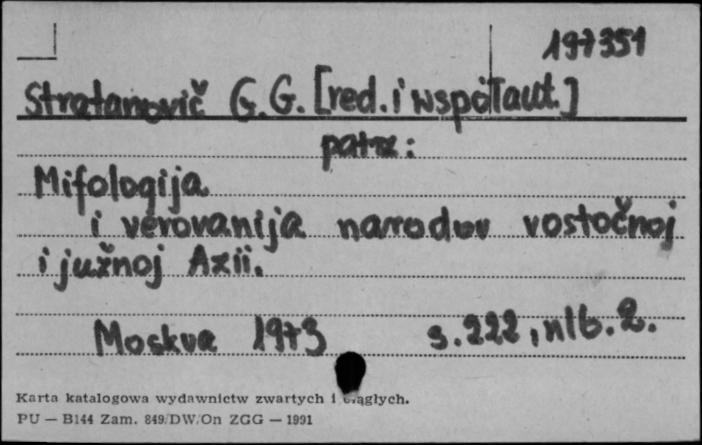 197351
Stratanovič G. G. [red. i współaut.]
patrz:
Mifologija
i verovanija narodov vostočnoj
i južnoj Azii.
Moskva 1973 s. 222, nlb. 2.
Karta katalogowa wydawnictw zwartych i ciągłych.
PU — B144 Zam. 849/DW/On ZGG — 1991